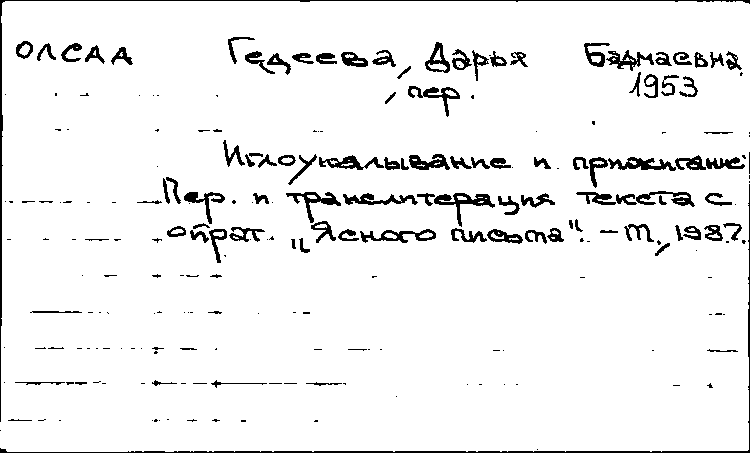 ОЛСАА Гедеева, Дарья Бадмаевна,
, пер. 1953
Иглоукалывание и прижигание:
Пер. и транслитерация текста с
ойрат. „Ясного письма". - М., 1987.